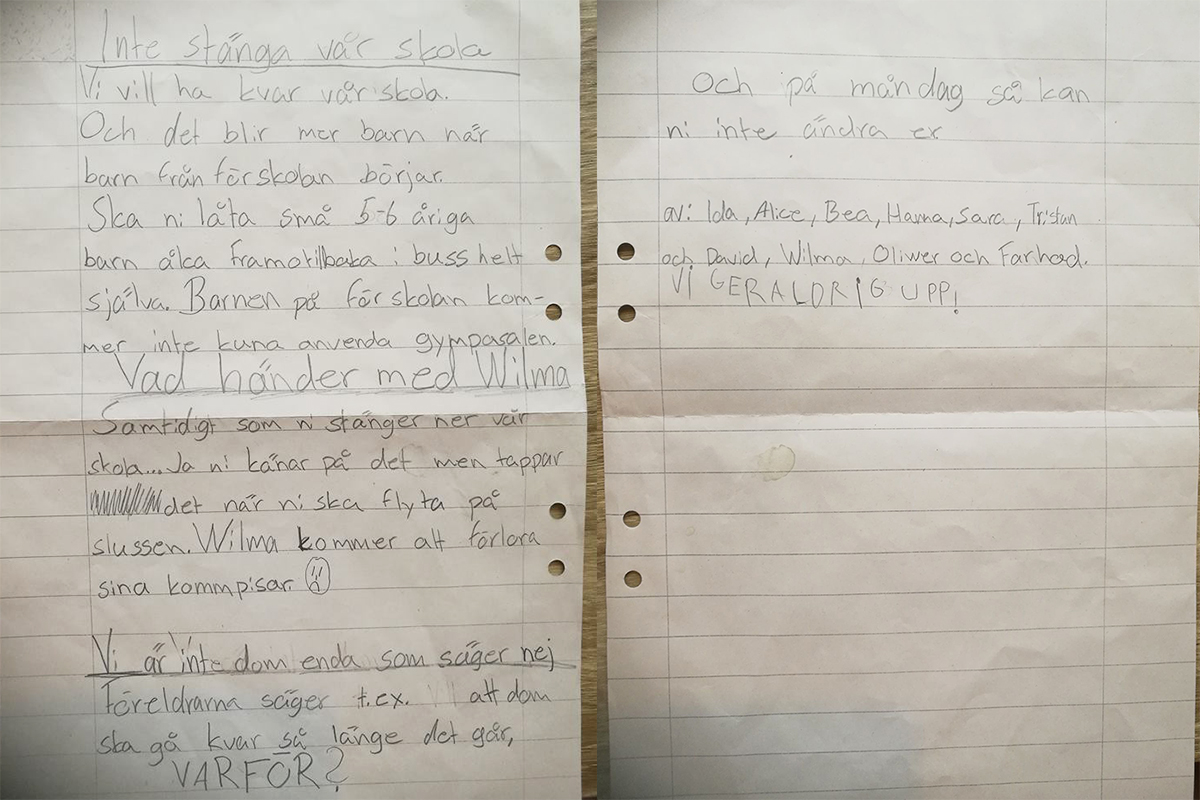 Inte stänga vår skola
Vi vill ha kvar vår skola.
Och det blir mer barn när
barn från förskolan börjar.
Ska ni låta små 5-6 åriga
barn álca framotillbaka i buss helt
själva. Barnen på förskolan kom-
mer inte kuna anvenda gympasalen.
Vad händer med Wilma
Samtidigt som ni stänger ner vår
skola... Ja ni känar på det men tappar
det när ni ska flyta på
slussen. Wilma kommer att förlora
sina kommpisar.
Vi är inte dom enda som säger nej
Föreldrarna säger t.ex. att dom
ska gå kvar så länge det går,
VARFÖR?
Och på måndag så kan
ni inte ändra er
av: Ida, Alice, Bea, Hanna, Sara, Tristan
och David, Wilma, Oliwer och Farhad.
VI GER ALDRIG UPP!